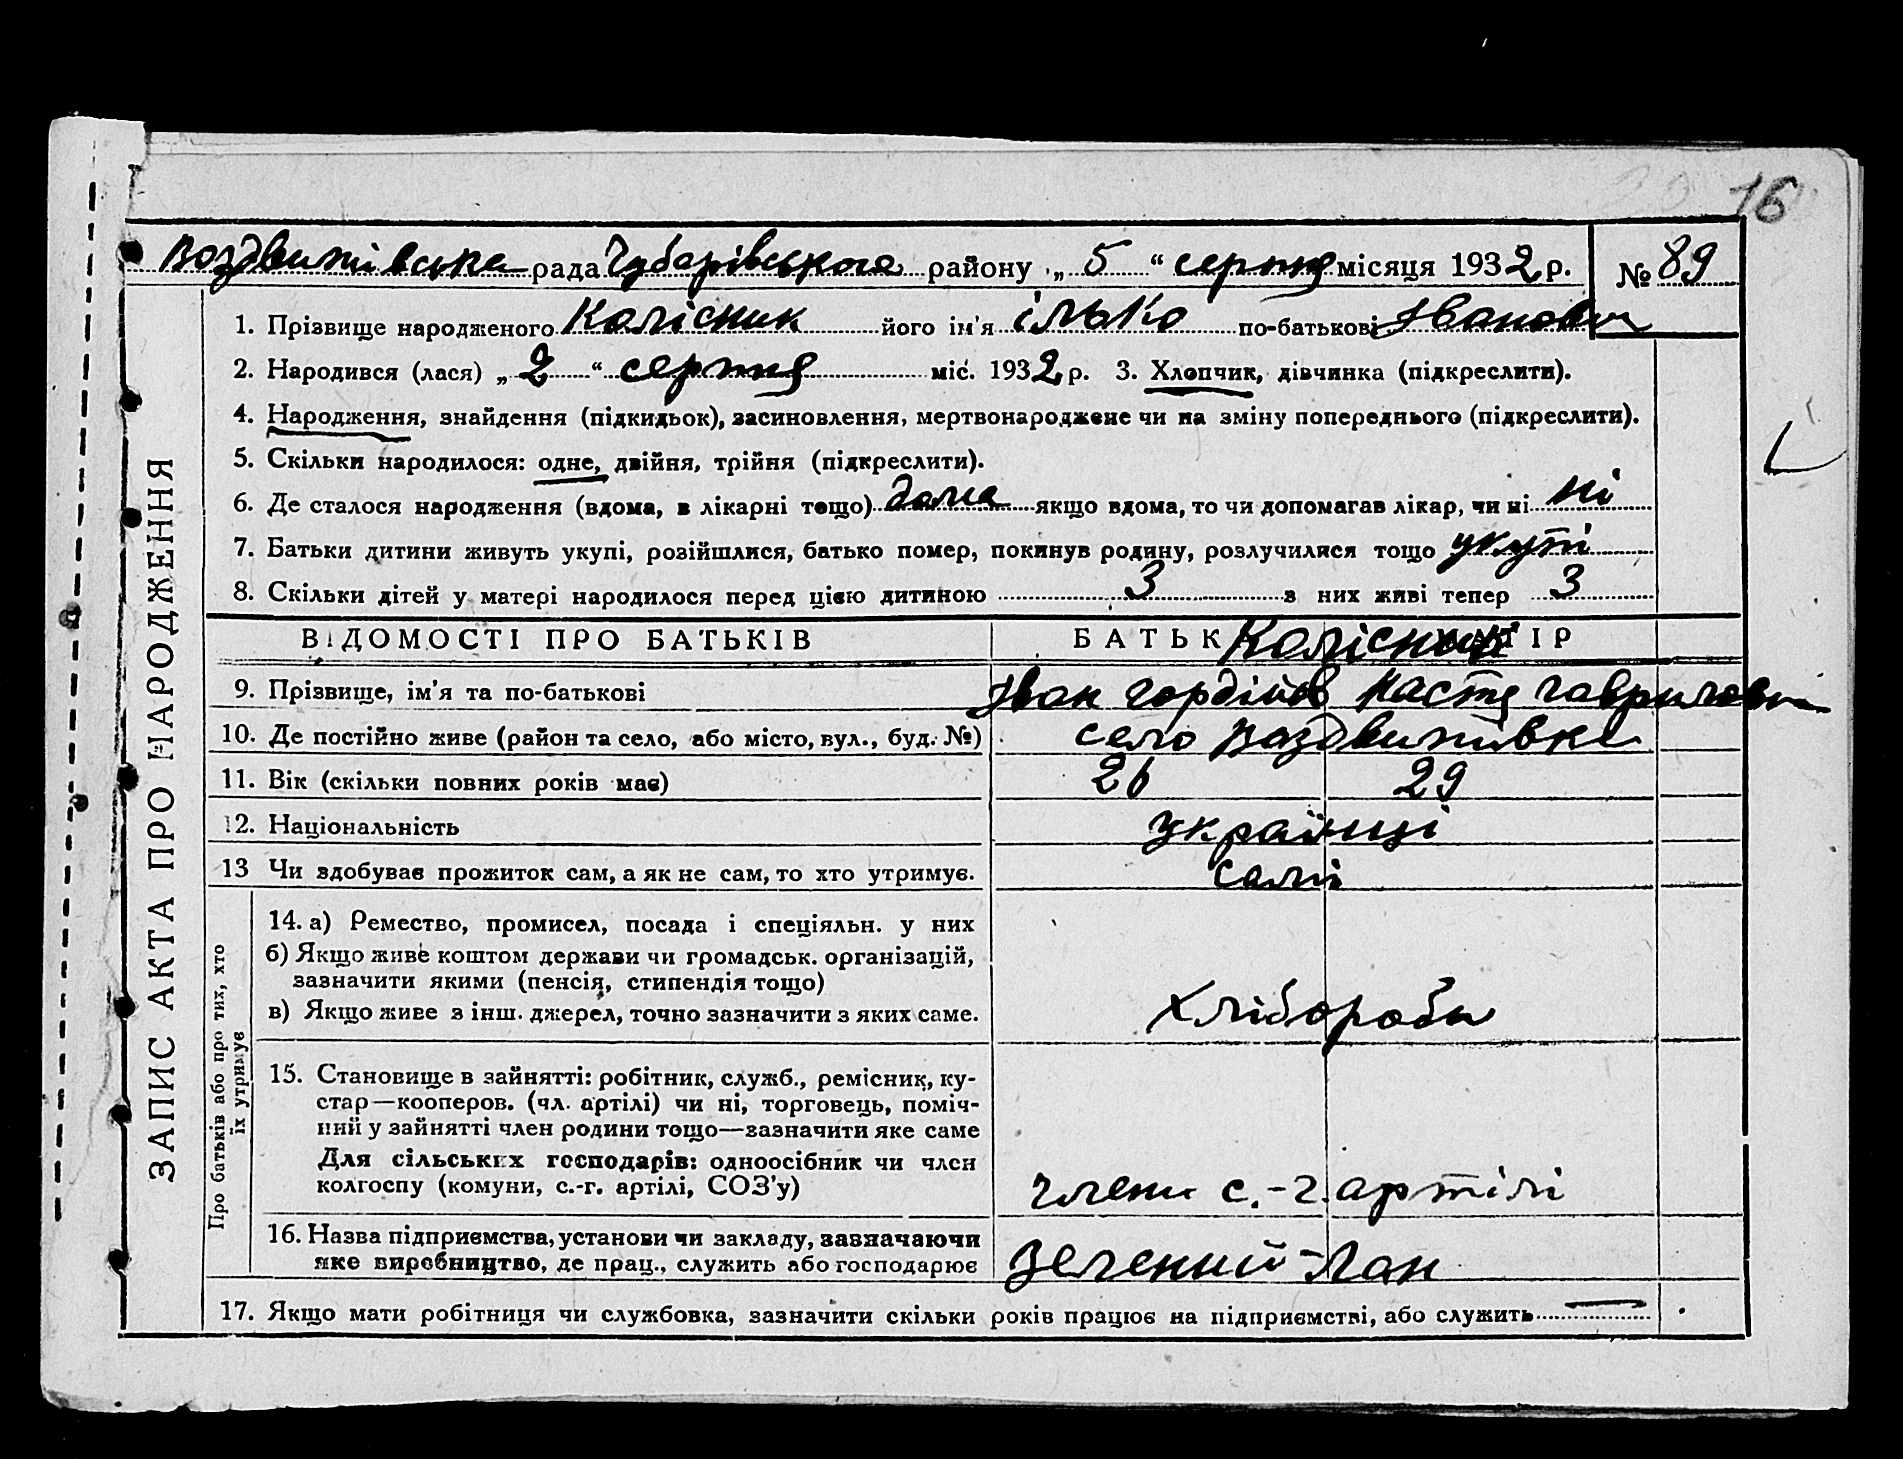 16
Воздвижівська рада Чубарівського району „ 5 “ серпня місяця 1932 р. № 89
1. Прізвище народженого Колісник його ім'я ілько по-батькові Іванович
2. Народився (лася) „ 2 “ серпня міс. 1932 р. 3. Хлопчик, дівчинка (підкреслити).
4. Народження, знайдення (підкидьок), засиновлення, мертвонароджене чи на зміну попереднього (підкреслити).
5. Скільки народилося: одне, двійня, трійня (підкреслити).
6. Де сталося народження (вдома, в лікарні тощо) дома якщо вдома, то чи допомагав лікар, чи ні ні
7. Батьки дитини живуть укупі, розійшлися, батько помер, покинув родину, розлучилися тощо укупі
8. Скільки дітей у матері народилося перед цією дитиною 3 з них живі тепер 3
ЗАПИС АКТА ПРО НАРОДЖЕННЯ
ВІДОМОСТІ ПРО БАТЬКІВ БАТЬК ІР
Колісник
9. Прізвище, ім'я та по-батькові Іван Гордійов Настя Гаврилови
10. Де постійно живе (район та село, або місто, вул., буд. №) село Воздвижівка
11. Вік (скільки повних років має) 26 29
12. Національність українці
13 Чи здобував прожиток сам, а як не сам, то хто утримує. самі
Про батьків або про тих, хто
їх утримує
14. а) Ремество, промисел, посада і спеціяльн. у них
б) Якщо живе коштом держави чи громадськ. організацій,
зазначити якими (пенсія, стипендія тощо)
в) Якщо живе з інш. джерел, точно зазначити з яких саме. Хлібороби
15. Становище в зайнятті: робітник, служб., ремісник, ку-
стар—кооперов. (чл. артілі) чи ні, торговець, поміч-
ний у зайнятті член родини тощо—зазначити яке саме
Для сільських господарів: одноосібник чи член
колгоспу (комуни, с.-г. артілі, СОЗ'у) члени с.-г. артілі
16. Назва підприємства, установи чи закладу, зазначаючи
яке виробництво, де прац., служить або господарює Зелений-Лан
17. Якщо мати робітниця чи службовка, зазначити скільки років працює на підприємстві, або служить —